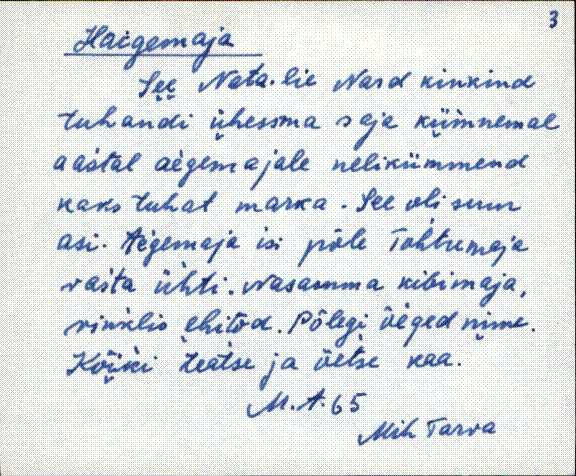 3
Haigemaja
See Nata.lie Nard kinkind
tuhandi ühessma saja kümnemal
aastal aegemajale nelikümmend
kaks tuhat marka. See oli suur
asi. Aegemaja isi põle Tohtumaja
vasta ühti. Nasamma kibimaja,
vinklis ehitõd. Põlegi õeged nime.
Kõiki teatse ja õetse kaa.
M.A.65
Mih Tarva